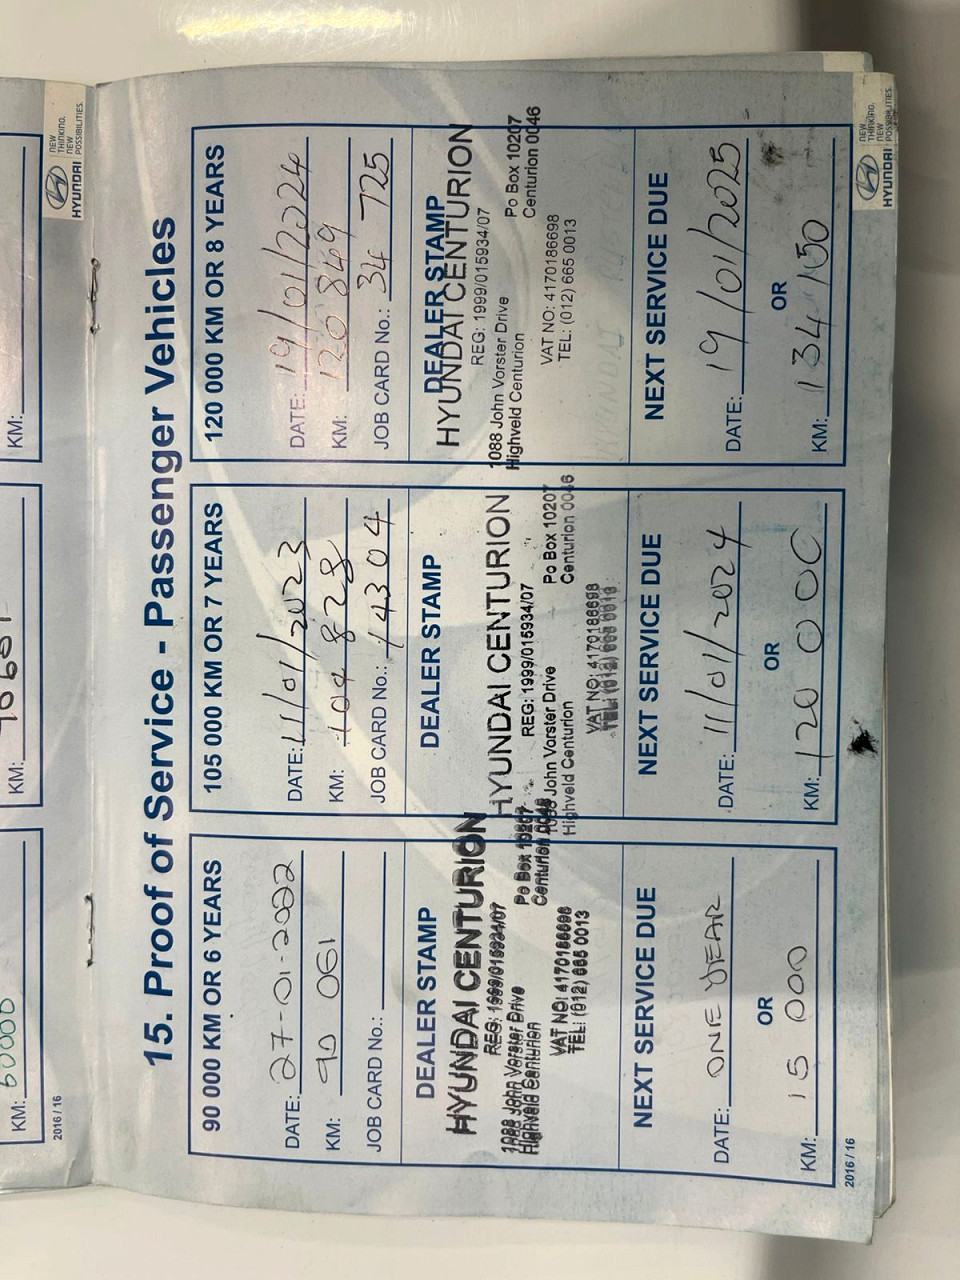 KM: 60000
2016 / 16
KM:
KM:
HYUNDAI
NEW
THINKING.
NEW
POSSIBILITIES.
15. Proof of Service - Passenger Vehicles
90 000 KM OR 6 YEARS
DATE: 27-01-2022
KM: 90 061
JOB CARD No.:
DEALER STAMP
HYUNDAI CENTURION
REG: 1999/015934/07
1088 John Vorster Drive
Po Box 10207
Highveld Centurion
Centurion 0046
VAT NO: 4170186698
TEL: (012) 665 0013
NEXT SERVICE DUE
DATE: ONE YEAR
OR
KM: 15 000
105 000 KM OR 7 YEARS
DATE: 11/01/2023
KM: 104 828
JOB CARD No.: 14304
DEALER STAMP
HYUNDAI CENTURION
REG: 1999/015934/07
1088 John Vorster Drive
Po Box 10207
Highveld Centurion
Centurion 0046
VAT NO: 4170186698
TEL: (012) 665 0013
NEXT SERVICE DUE
DATE: 11/01/2024
OR
KM: 120 000
120 000 KM OR 8 YEARS
DATE: 19/01/2024
KM: 120 849
JOB CARD No.: 34 725
DEALER STAMP
HYUNDAI CENTURION
REG: 1999/015934/07
1088 John Vorster Drive
Po Box 10207
Highveld Centurion
Centurion 0046
VAT NO: 4170186698
TEL: (012) 665 0013
NEXT SERVICE DUE
DATE: 19/01/2025
OR
KM: 134150
2016 / 16
HYUNDAI
NEW
THINKING.
NEW
POSSIBILITIES.